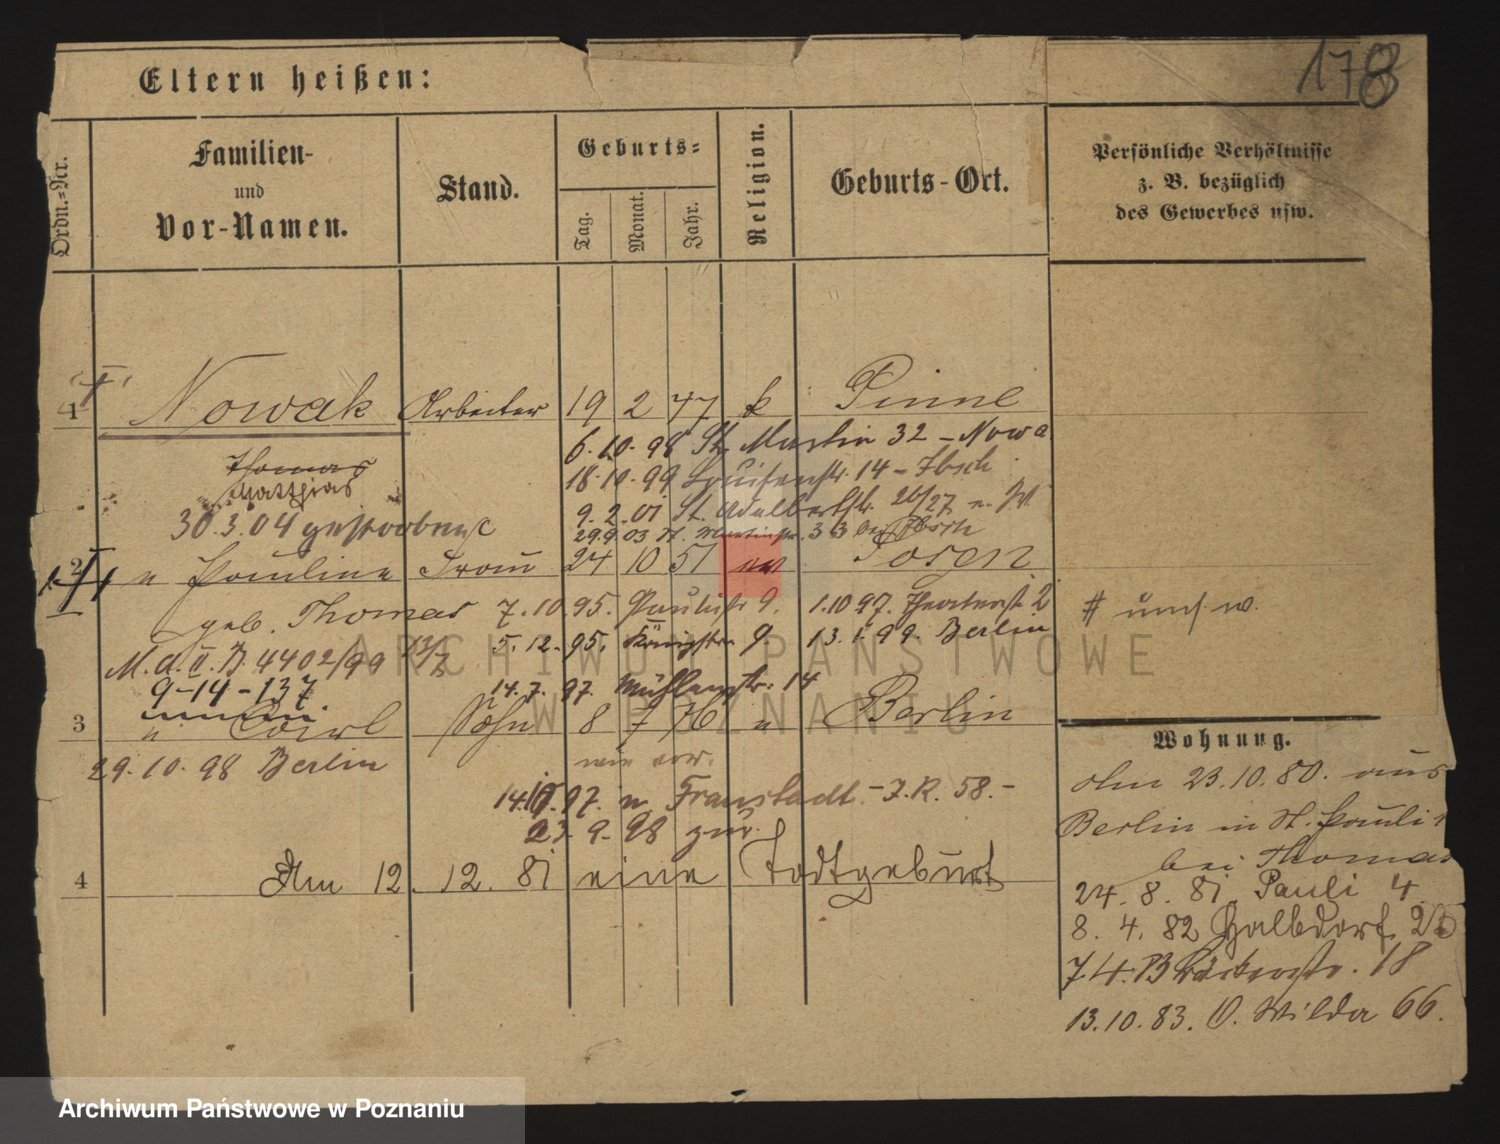 178
Eltern heißen:
Ordn.-Nr.
Familien-
und
Vor-Namen.
Stand.
Geburts-
Tag.
Monat.
Jahr.
Religion.
Geburts-Ort.
Persönliche Verhältnisse
z. B. bezüglich
des Gewerbes usw.
1 Nowak Arbeiter 19 2 47 k Pinne
6.10.98 St. Martin 32 - Nowa
Thomas
Matthias
18.10.99 Louisenstr. 14 - Ibsch
9.2.01 St. Adalbertstr. 26/27
30.3.04 gestorben
29.9.03 St. Martinstr. 33
2 " Pauline Frau 24 10 51 Posen
geb. Thomas
7.10.95. Paulistr 9.
1.10 97. Theaterst. 2
# umf w.
5.12.95. Königstr. 9.
13.1.99. Berlin
M.a.II.B.4402/99
9-14-137
14.7.97. Mühlenstr. 14
3 " Carl Sohn 8 7 76 " Berlin
29.10.98 Berlin
wie vor.
14.10.97. n. Fraustadt. - I.R. 58. -
23.9.98 zur.
4 Am 12. 12. 81 eine Todtgeburt
Wohnung.
Am 23.10.80. aus
Berlin in St. Pauli
bei Thomas
24. 8. 81. Pauli 4.
8. 4. 82 Halbdorf 23
7 4. B Bäckerstr. 18
13.10.83. O. Wilda 66.
ARCHIWUM PAŃSTWOWE
W POZNANIU
Archiwum Państwowe w Poznaniu